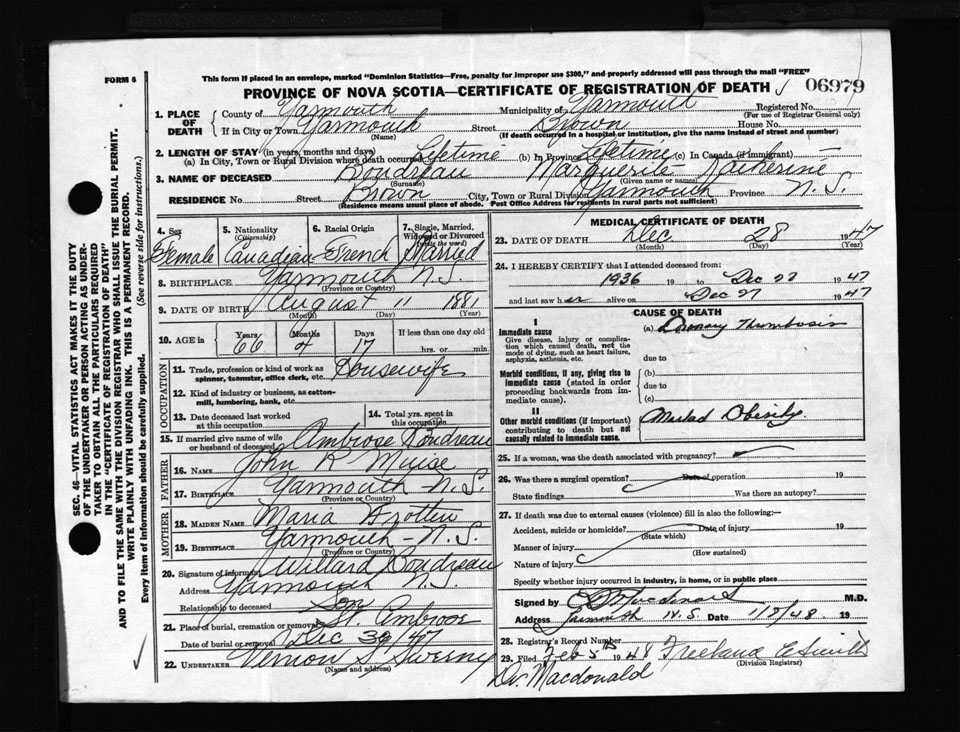 FORM 6
This form if placed in an envelope, marked "Dominion Statistics—Free, penalty for improper use $300," and properly addressed will pass through the mail "FREE"
PROVINCE OF NOVA SCOTIA—CERTIFICATE OF REGISTRATION OF DEATH 06979
1. PLACE OF DEATH County of Yarmouth Municipality of Yarmouth Registered No.
(For use of Registrar General only)
If in City or Town Yarmouth Street Brown House No.
(Name) (If death occurred in a hospital or institution, give the name instead of street and number)
2. LENGTH OF STAY (in years, months and days)
(a) In City, Town or Rural Division where death occurred Lifetime (b) In Province Lifetime (c) In Canada (if immigrant) —
3. NAME OF DECEASED Boudreau Marguerite Katherine
(Surname) (Given name or names)
RESIDENCE No. Street Brown City, Town or Rural Division Yarmouth Province N.S.
(Residence means usual place of abode. Post Office Address for residents in rural parts not sufficient)
4. Sex Female
5. Nationality (Citizenship) Canadian
6. Racial Origin French
7. Single, Married, Widowed or Divorced (write the word) Married
8. BIRTHPLACE Yarmouth N.S.
(Province or Country)
9. DATE OF BIRTH August 11 1881
(Month) (Day) (Year)
10. AGE in Years 66 Months 4 Days 17 If less than one day old hrs. or min.
OCCUPATION
11. Trade, profession or kind of work as spinner, teamster, office clerk, etc. Housewife
12. Kind of industry or business, as cotton-mill, lumbering, bank, etc.
13. Date deceased last worked at this occupation
14. Total yrs. spent in this occupation
15. If married give name of wife or husband of deceased Ambrose Boudreau
FATHER
16. NAME John R Muise
17. BIRTHPLACE Yarmouth - N.S.
(Province or Country)
MOTHER
18. MAIDEN NAME Maria
19. BIRTHPLACE Yarmouth - N.S.
(Province or Country)
20. Signature of informant Willard Boudreau
Address Yarmouth N.S.
Relationship to deceased Son
21. Place of burial, cremation or removal St. Ambrose
Date of burial or removal Dec 30/47
22. UNDERTAKER Vernon S. Sweeny
(Name and address)
MEDICAL CERTIFICATE OF DEATH
23. DATE OF DEATH Dec 28 1947
(Month) (Day) (Year)
24. I HEREBY CERTIFY that I attended deceased from:
1936 19 to Dec 27 1947
and last saw her alive on Dec 27 1947
CAUSE OF DEATH
I
Immediate cause
Give disease, injury or complication which caused death, not the mode of dying, such as heart failure, asphyxia, asthenia, etc.
(a) Coronary Thrombosis
due to
Morbid conditions, if any, giving rise to immediate cause (stated in order proceeding backwards from immediate cause).
(b)
due to
(c)
II
Other morbid conditions (if important) contributing to death but not causally related to immediate cause.
Marked Obesity.
25. If a woman, was the death associated with pregnancy?
26. Was there a surgical operation? Date of operation 19
State findings Was there an autopsy?
27. If death was due to external causes (violence) fill in also the following:—
Accident, suicide or homicide? Date of injury 19
(State which)
Manner of injury
(How sustained)
Nature of injury
Specify whether injury occurred in industry, in home, or in public place
Signed by Macdonald M.D.
Address Yarmouth N.S. Date 1/2/48 19
28. Registrar's Record Number
29. Filed Feb 5th 1948 Freeland E Smith
(Division Registrar)
Dr. Macdonald
SEC. 46—VITAL STATISTICS ACT MAKES IT THE DUTY
OF THE UNDERTAKER OR PERSON ACTING AS UNDERTAKER
TO OBTAIN ALL THE PARTICULARS REQUIRED
IN THE "CERTIFICATE OF REGISTRATION OF DEATH"
AND TO FILE THE SAME WITH THE DIVISION REGISTRAR WHO SHALL ISSUE THE BURIAL PERMIT.
WRITE PLAINLY WITH UNFADING INK. THIS IS A PERMANENT RECORD.
Every item of information should be carefully supplied. (See reverse side for instructions.)